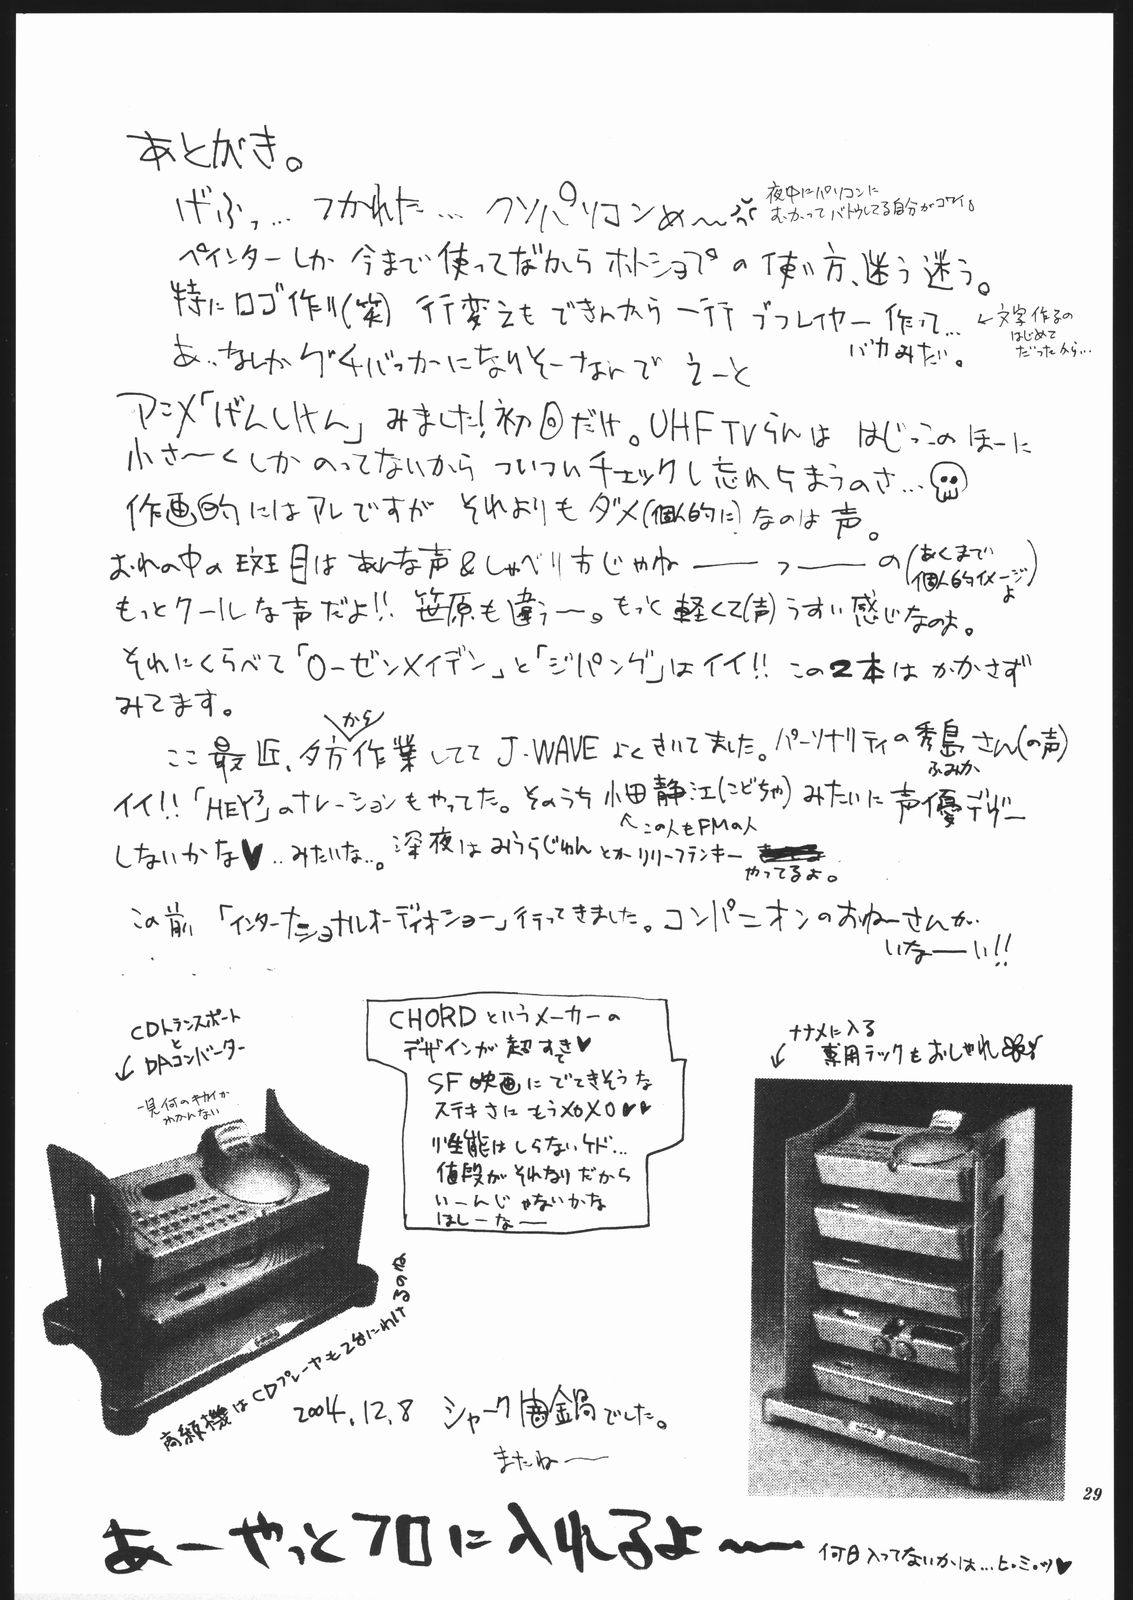 あとがき。
げふっ… つかれた… クソパソコンめ〜
夜中にパソコンに
むかってバトウしてる自分がコワイ。
ペインターしか今まで使ってなかったからホトショプの使い方、迷う迷う。
特にロゴ作り(笑) 行変えもできんから一行ずつレイヤー作って…
バカみたい。
←文字作るの
はじめて
だったから…
あ、なんかグチバッカーになりそーなんで えーと
アニメ「げんしけん」みました!初回だけ。UHF TVらんは はじっこのほーに
小さ〜くしかのってないから ついついチェックし忘れちまうのさ…
作画的にはアレですが それよりもダメ(個人的に)なのは声。
おれの中の斑目はあんな声&しゃべり方じゃねーっーの(あくまで
個人的イメージよ)
もっとクールな声だよ!! 笹原も違うー。もっと軽くて(声)うすい感じなのよ。
それにくらべて「ローゼンメイデン」と「ジパング」はイイ!! この2本はかかさず
みてます。
ここ最近、夕方から作業してて J-WAVEよくきいてました。パーソナリティの秀島さん(の声)
ふみか
イイ!!「HEY³」のナレーションもやってた。そのうち小田静江(こどちゃ)みたいに声優デヴー
↖この人もFMの人
しないかな♥‥みたいな…。深夜はみうらじゅんとかリリーフランキー
やってるよ。
この前「インターナショナルオーディオショー」行ってきました。コンパニオンのおねーさんが
いなーい!!
CDトランスポート
と
DAコンバーター
一見何のキカイか
わかんない
CHORDというメーカーの
デザインが超すてき♥
SF映画にでてきそうな
ステキさにもうメロメロ♥♥
性能はしらないケド…
値段がそれなりだから
いーんじゃないかな
ほしーなー
ナナメに入る
専用ラックもおしゃれ
高級機はCDプレーヤも2台にわけるのね
2004.12.8 シャーク歯鍋でした。
またねー
29
あーやっとフロに入れるよ〜
何日入ってないかは…ヒ・ミ・ツ♥